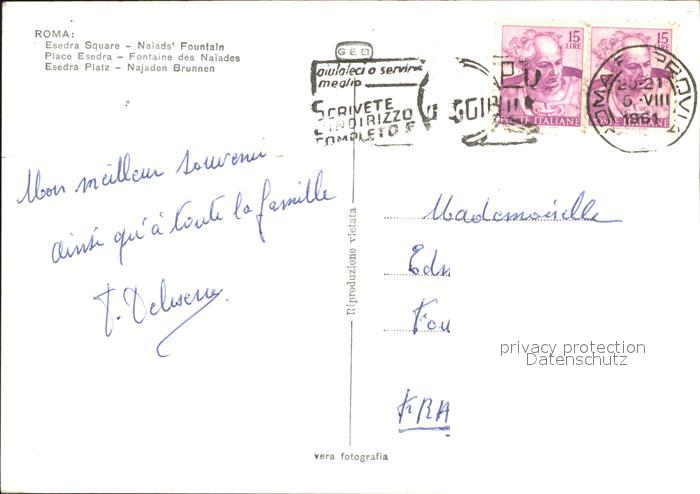 ROMA:
Esedra Square - Naiads' Fountain
Place Esedra - Fontaine des Naïades
Esedra Platz - Najaden Brunnen
GEB
aiutateci a servirvi
meglio
SCRIVETE
L'INDIRIZZO
COMPLETO E
15
LIRE
15
LIRE
POSTE ITALIANE
POSTE ITALIANE
ROMA FERROVIA
20-21
6-VIII
1961
Mon meilleur souvenir
ainsi qu'à toute la famille
Mademoiselle
Edn
Fou
FRA
Riproduzione vietata
privacy protection
Datenschutz
vera fotografia